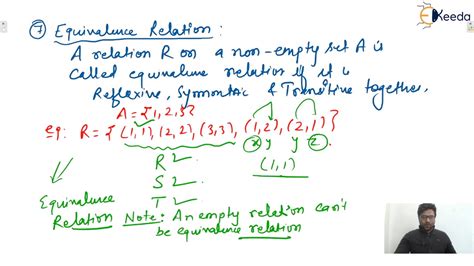 Ekeeda
⑦ Equivalence Relation:
A relation R on a non-empty set A is
called equivalence relation if it is
Reflexive, Symmetric & Transitive together.
A = {1,2,3}
eg: R = {(1,1), (2,2), (3,3), (1,2), (2,1)}
x y y z
R ✓ (1,1)
S ✓
T ✓
Equivalence
Relation Note: An empty relation can't
be equivalence relation